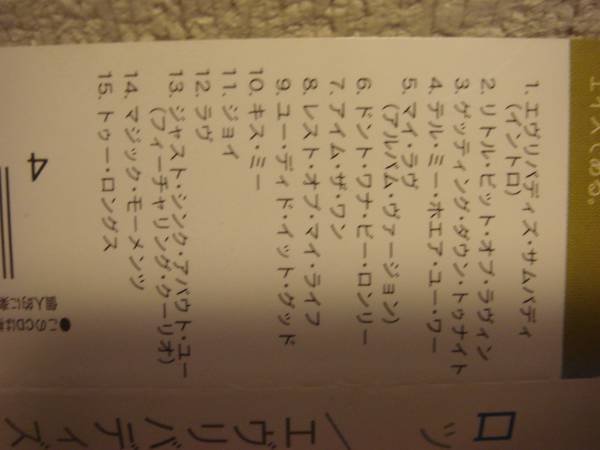 エイスである。
1. エヴリバディズ・サムバディ
(イントロ)
2. リトル・ビット・オブ・ラヴィン
3. ゲッティング・ダウン・トゥナイト
4. テル・ミー・ホエア・ユー・ワー
5. マイ・ラヴ
(アルバム・ヴァージョン)
6. ドント・ワナ・ビー・ロンリー
7. アイム・ザ・ワン
8. レスト・オブ・マイ・ライフ
9. ユー・ディド・イット・グッド
10. キス・ミー
11. ジョイ
12. ラヴ
13. ジャスト・シンク・アバウト・ユー
(フィーチャリング・クーリオ)
14. マジック・モーメンツ
15. トゥー・ロングス
4
●このCDは
個人的に
ロ
ッ
/エヴリバディズ